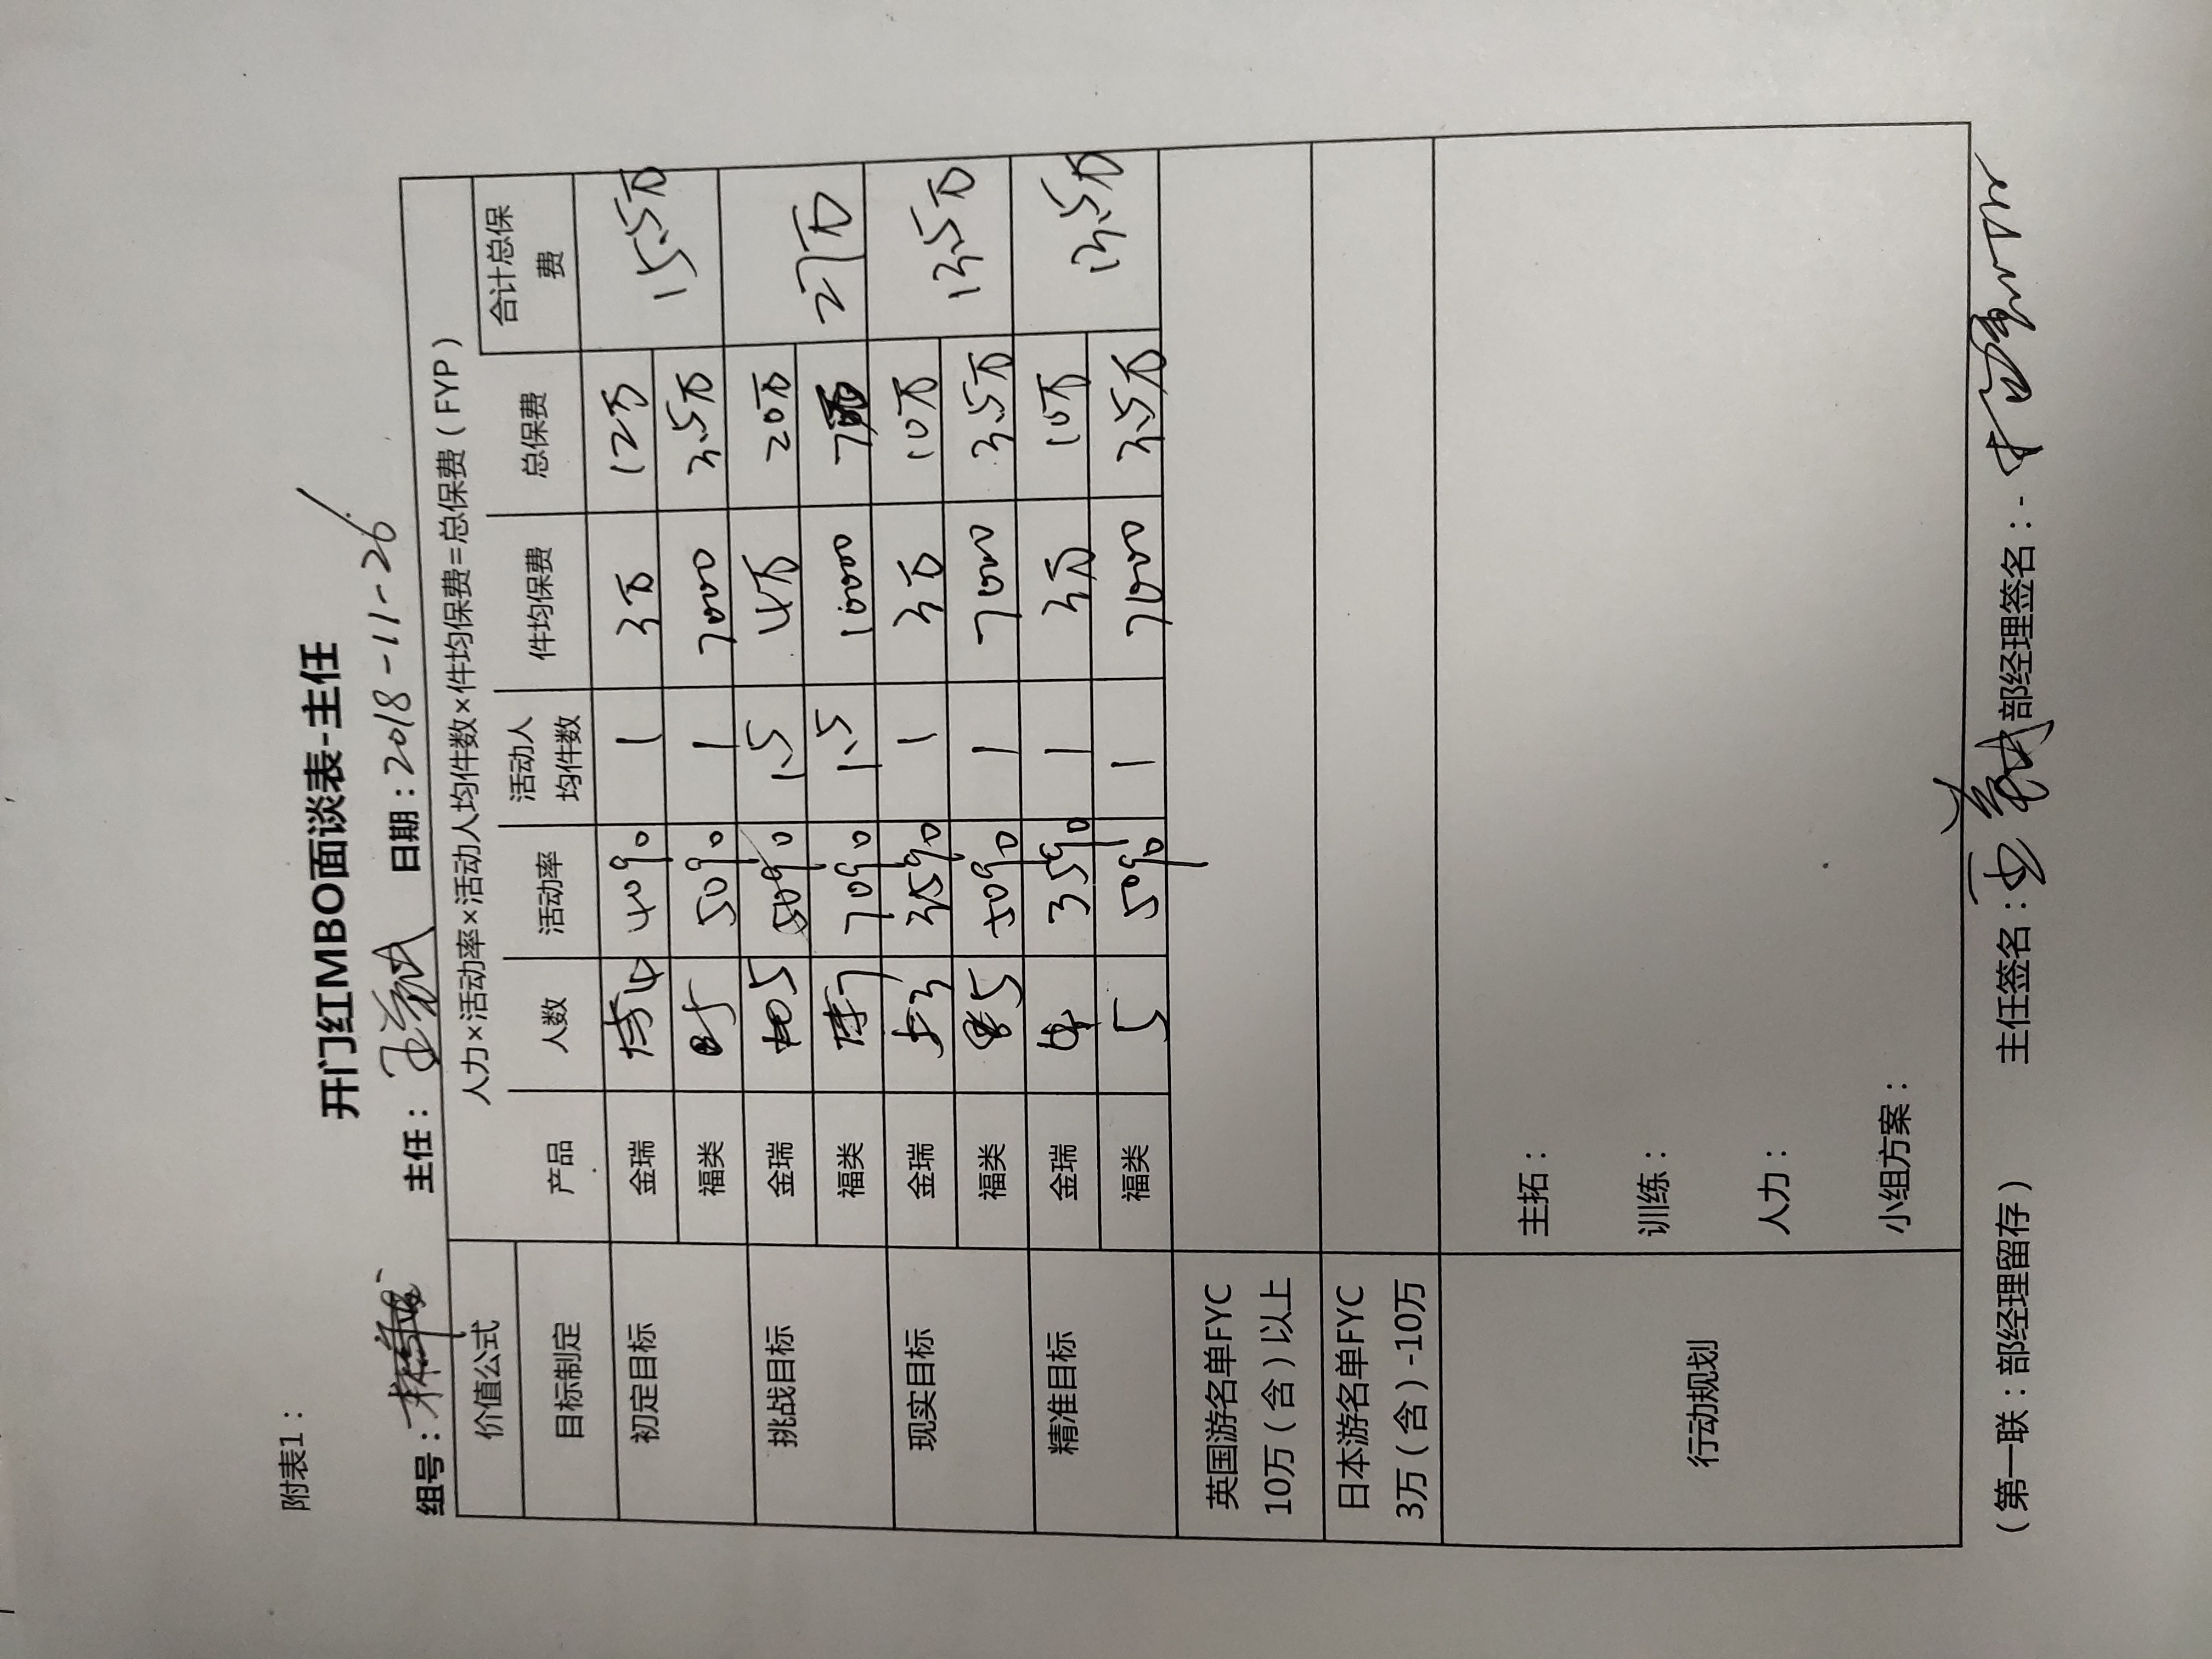 附表1：
开门红MBO面谈表-主任
组号： 主任： 日期：2018-11-26
价值公式 人力×活动率×活动人均件数×件均保费=总保费（FYP）
目标制定 产品 人数 活动率 活动人均件数 件均保费 总保费 合计总保费
初定目标 金瑞 4 40% 1 3万 12万 15.5万
福类 5 50% 1 7000 3.5万
挑战目标 金瑞 5 50% 1.5 4万 20万 27万
福类 7 70% 1.5 10000 7万
现实目标 金瑞 3 35% 1 3万 10万 13.5万
福类 5 50% 1 7000 3.5万
精准目标 金瑞 35% 1 3万 10万 13.5万
福类 5 50% 1 7000 3.5万
英国游名单FYC
10万（含）以上
日本游名单FYC
3万（含）-10万
行动规划
主拓：
训练：
人力：
小组方案：
（第一联：部经理留存） 主任签名： 部经理签名：